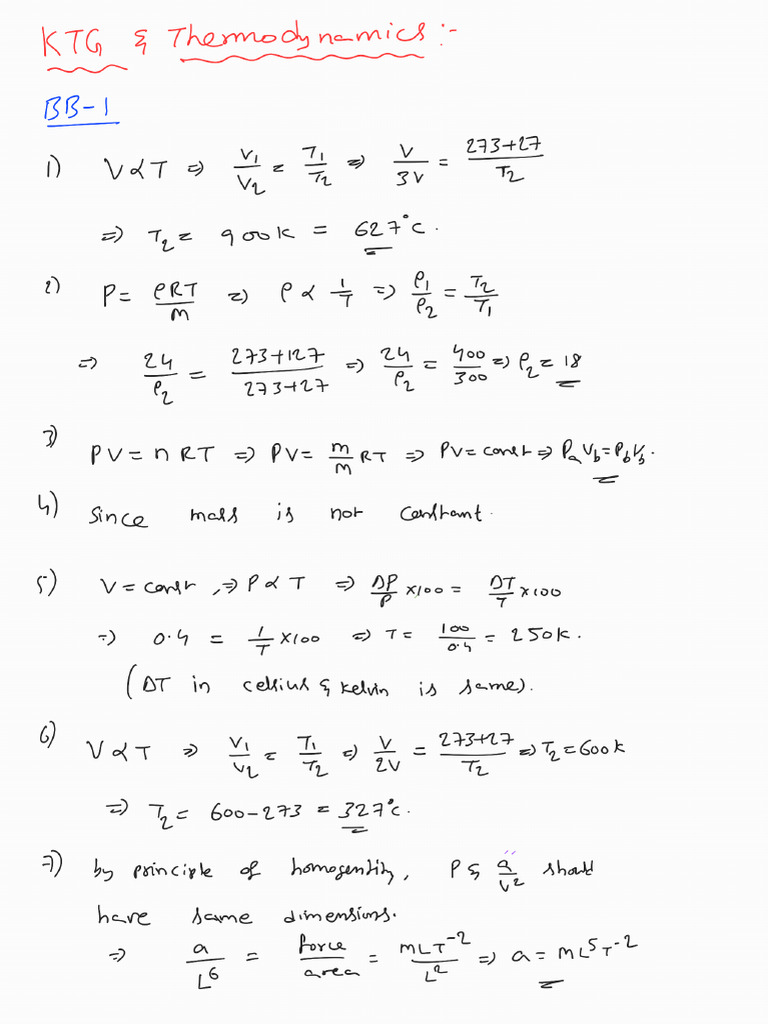 KTG & Thermodynamics:-
BB-1
1) V∝T ⇒ V₁/V₂ = T₁/T₂ ⇒ V/3V = (273+27)/T₂
⇒ T₂ = 900K = 627°C.
2) P = ρRT/M ⇒ ρ ∝ 1/T ⇒ ρ₁/ρ₂ = T₂/T₁
⇒ 24/ρ₂ = (273+127)/(273+27) ⇒ 24/ρ₂ = 400/300 ⇒ ρ₂ = 18
3) PV = nRT ⇒ PV = m/M RT ⇒ PV = const ⇒ PₐV_b = P_bV_b.
4) Since mass is not constant.
5) V = const, ⇒ P∝T ⇒ ΔP/P ×100 = ΔT/T ×100
⇒ 0.4 = 1/T ×100 ⇒ T = 100/0.4 = 250K.
(ΔT in celsius & kelvin is same).
6) V∝T ⇒ V₁/V₂ = T₁/T₂ ⇒ V/2V = (273+27)/T₂ ⇒ T₂ = 600K
⇒ T₂ = 600-273 = 327°C.
7) by principle of homogentity, P & a/V² should
have same dimensions.
⇒ a/L⁶ = force/area = MLT⁻²/L² ⇒ a = ML⁵T⁻²